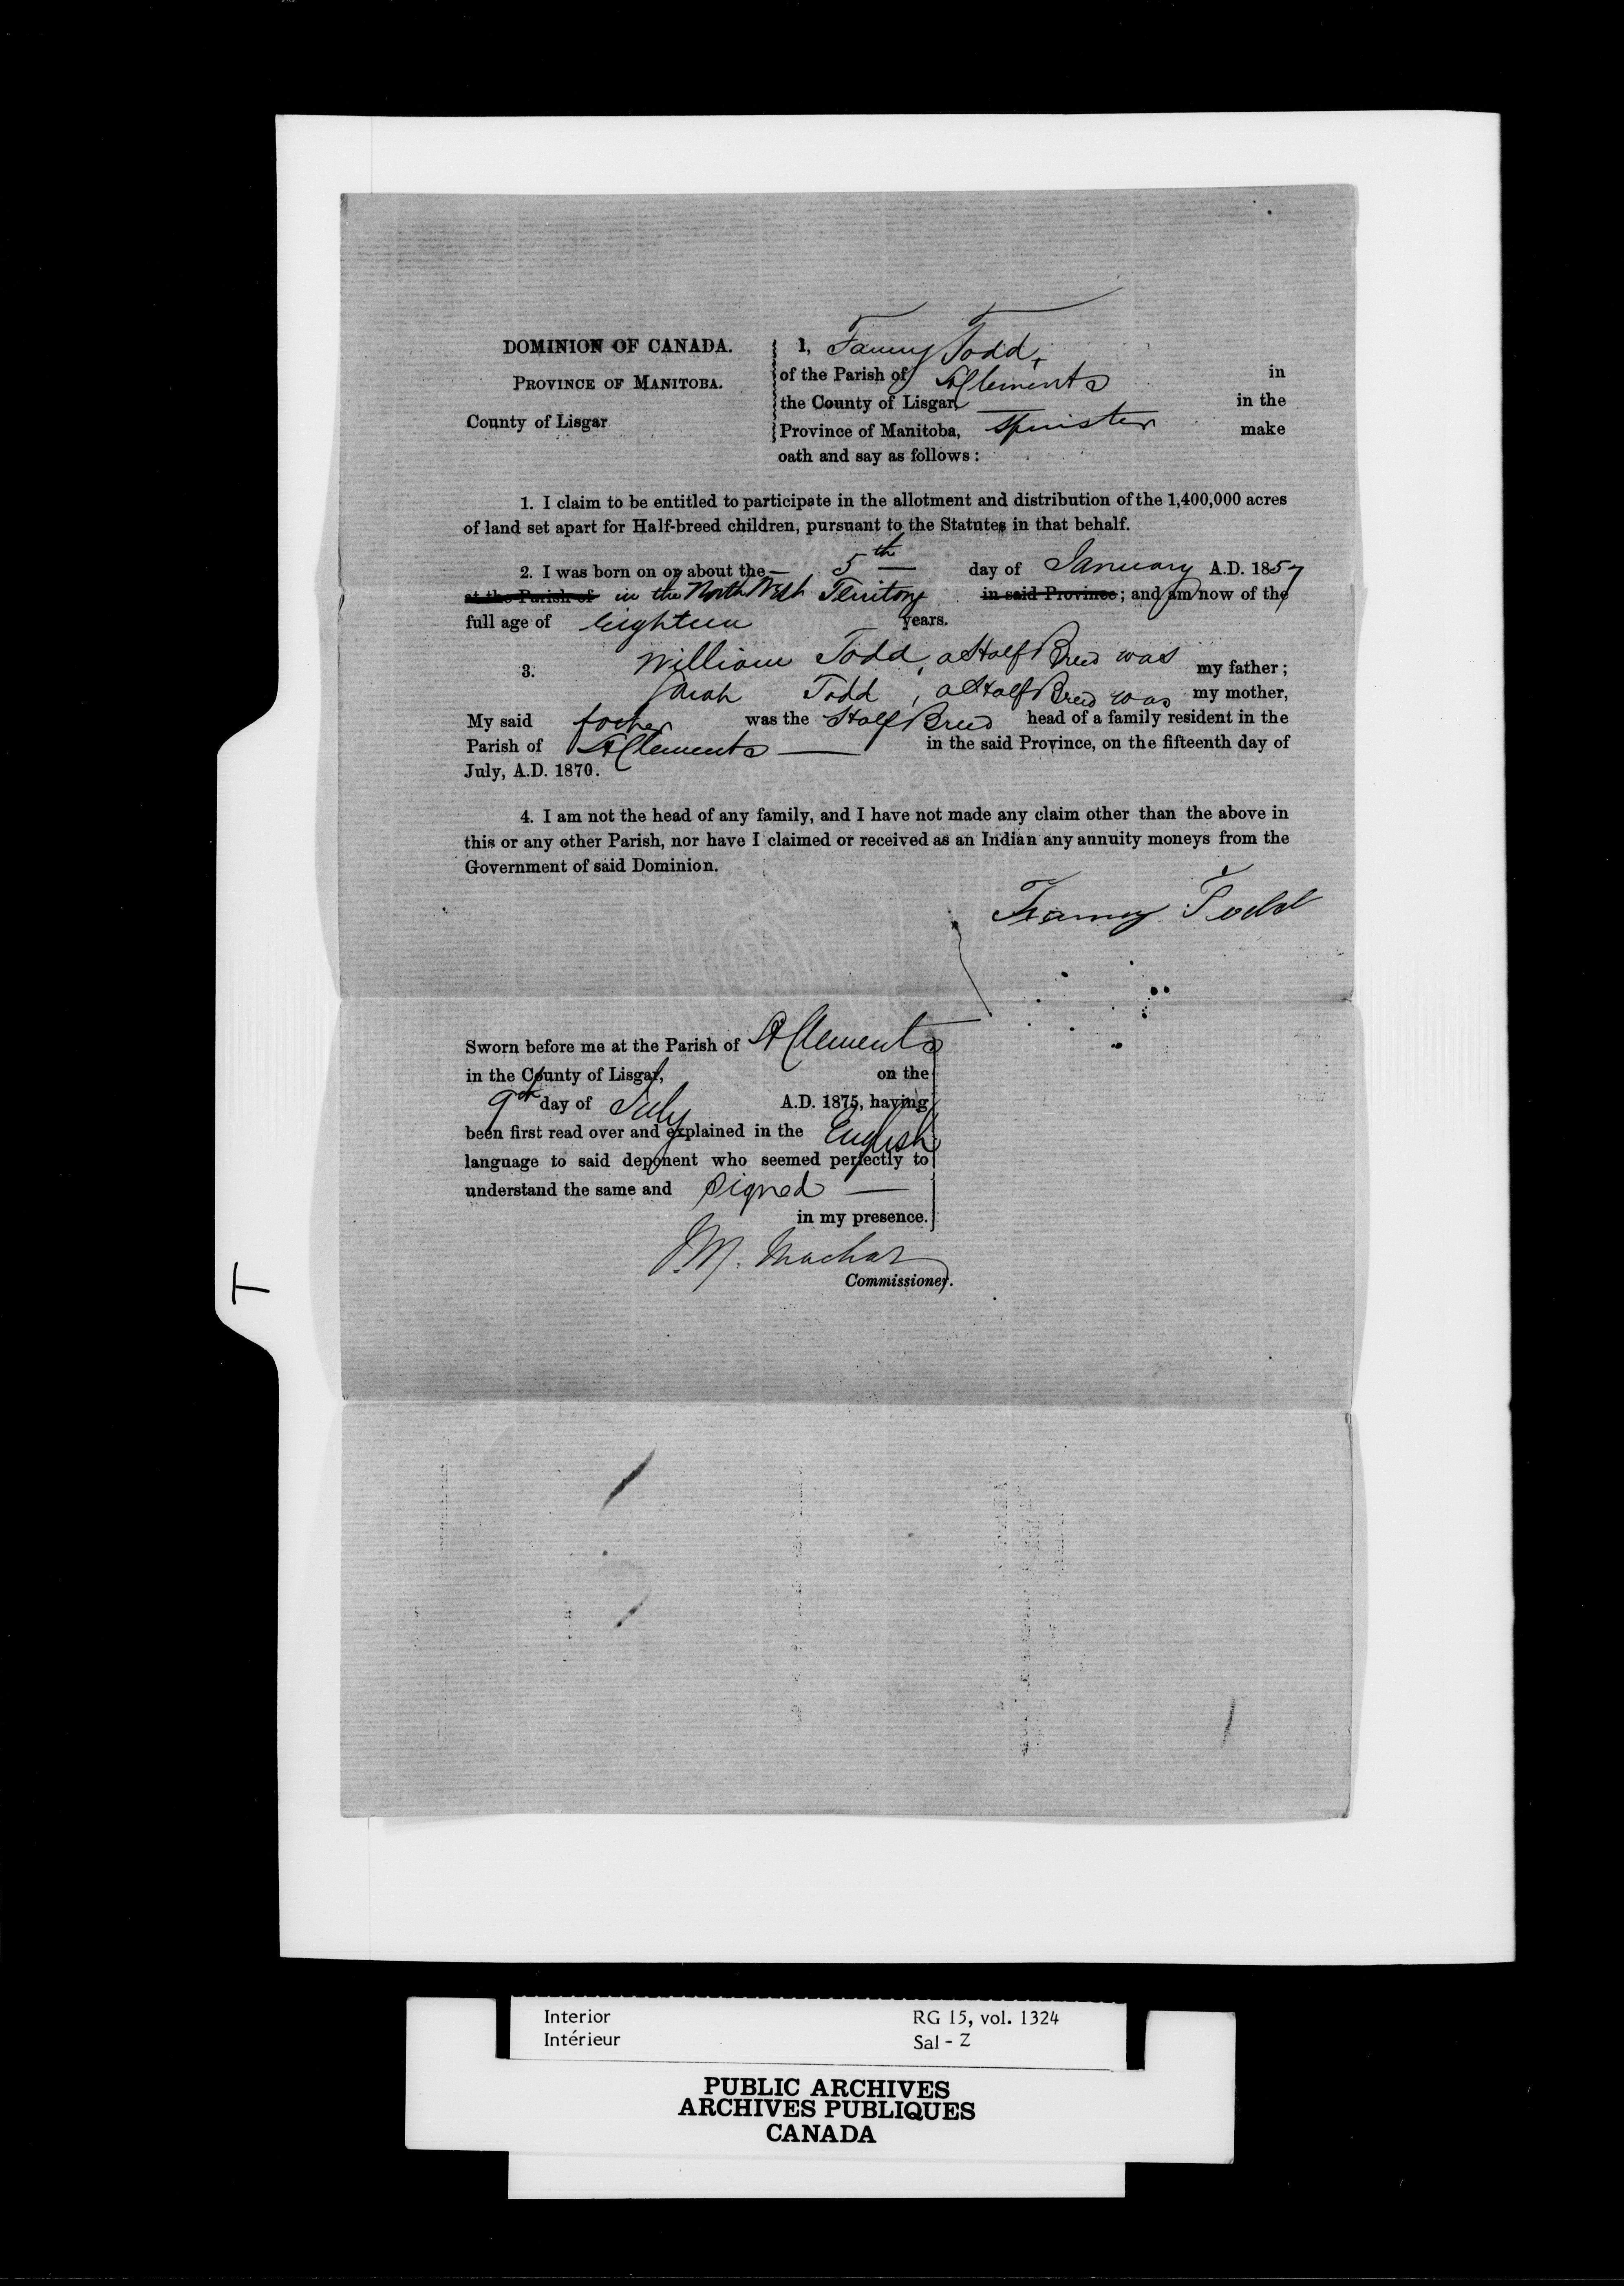 DOMINION OF CANADA.
PROVINCE OF MANITOBA.
County of Lisgar
I, Fanny Todd,
of the Parish of St Clements in
the County of Lisgar, in the
Province of Manitoba, Spinster make
oath and say as follows:
1. I claim to be entitled to participate in the allotment and distribution of the 1,400,000 acres
of land set apart for Half-breed children, pursuant to the Statutes in that behalf.
2. I was born on or about the 5th day of January A.D. 1857
at the Parish of in the North West Territory in said Province; and am now of the
full age of Eighteen years.
3. William Todd, a Half Breed was my father;
Sarah Todd, a Half Breed was my mother,
My said father was the Half Breed head of a family resident in the
Parish of St Clements in the said Province, on the fifteenth day of
July, A.D. 1870.
4. I am not the head of any family, and I have not made any claim other than the above in
this or any other Parish, nor have I claimed or received as an Indian any annuity moneys from the
Government of said Dominion.
Fanny Todd
Sworn before me at the Parish of St Clements
in the County of Lisgar, on the
9th day of July A.D. 1875, having
been first read over and explained in the English
language to said deponent who seemed perfectly to
understand the same and signed
in my presence.
J.M. Machar
Commissioner.
T
Interior RG 15, vol. 1324
Intérieur Sal - Z
PUBLIC ARCHIVES
ARCHIVES PUBLIQUES
CANADA